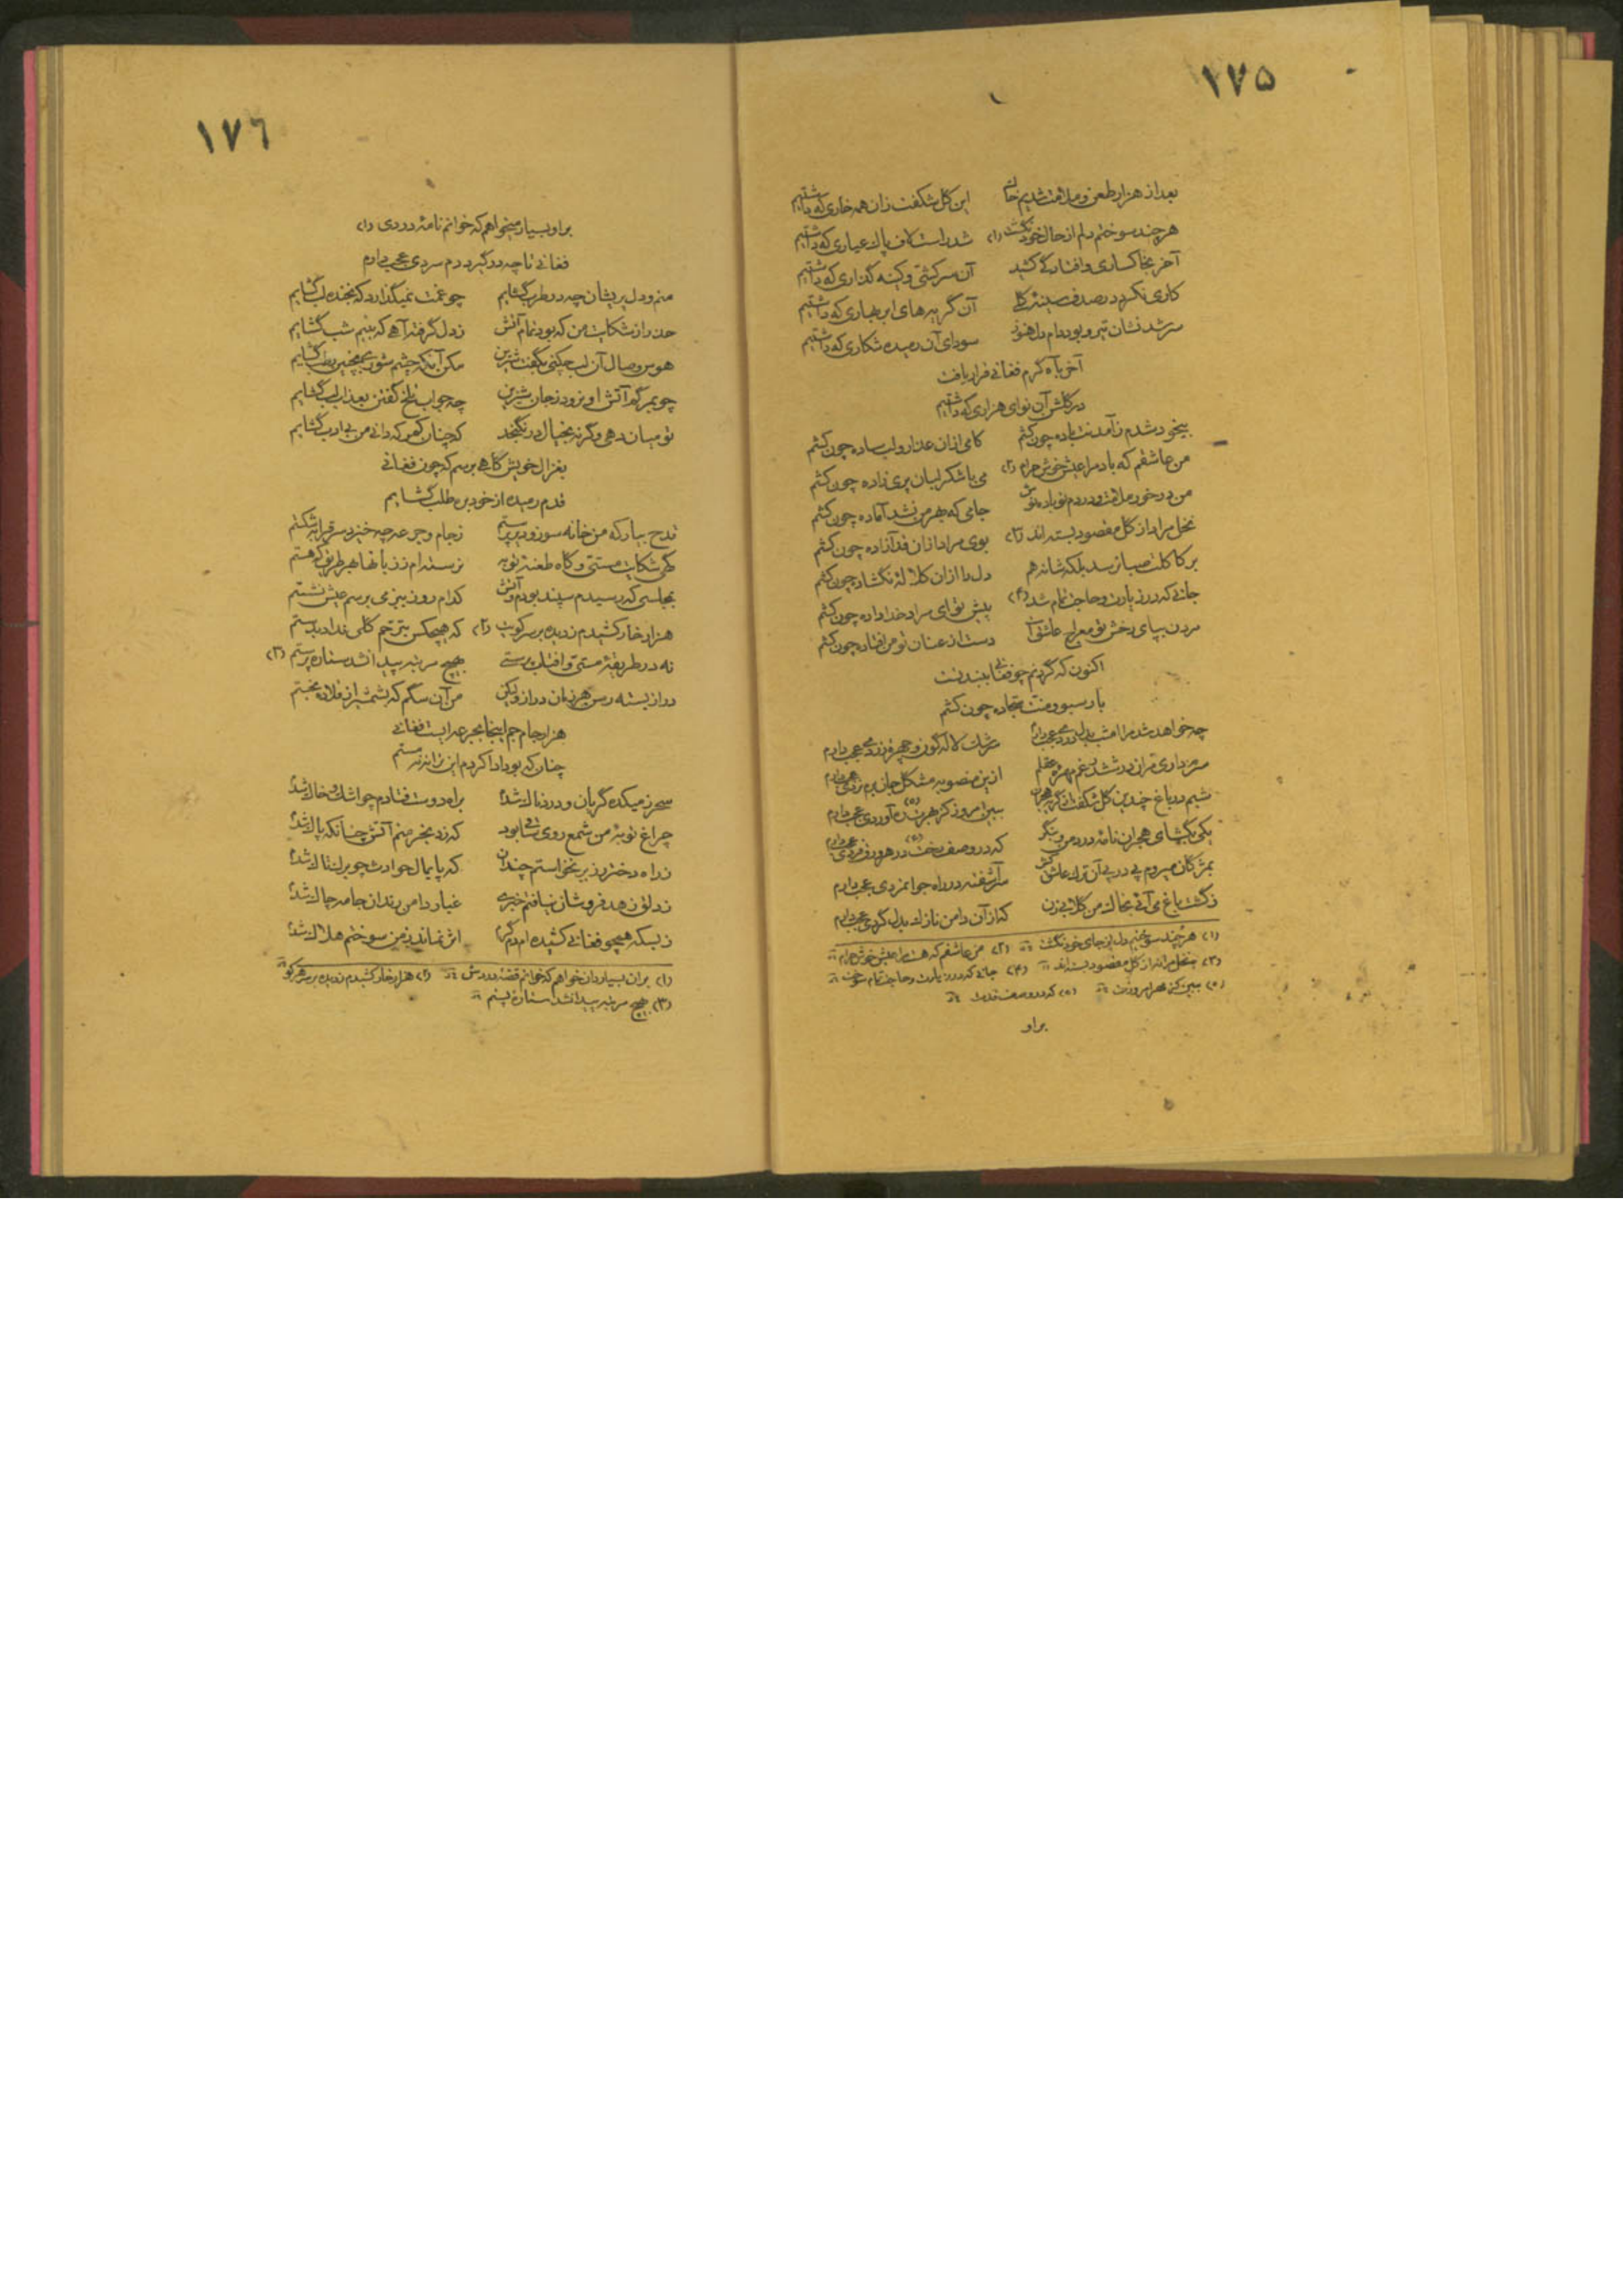 ١٧۵
بعد از هزار طعن و ملامت شدیم خاک این گل شکفت زان همه خاری که داشتیم
هر چند سوختم دلم از حال خود نگشت (١) شد راست لاف پاک عیاری که داشتیم
آخر بخاکساری و افتادگی کشید آن سرکشی و کینه گذاری که داشتیم
کاری نکرد در صدف سینه گلی آن گریه های ابر بهاری که داشتیم
سر شد نشان تیر و بود دام دل هنوز سودای آن رمیده شکاری که داشتیم
آخر بآه گرم فغانی قرار یافت
در گلشن آن نوای هزاری که داشتیم
بیخود شدم ز آمدنت باده چون کشم کامی ازان عذار و لب ساده چون کشم
من عاشقم که باد مرا عیش خوش حرام (٢) می با شکر لبان پری زاده چون کشم
من در خور ملامت و دردم نو باده نوش جامی که بهر من نشد آماده چون کشم
نخل مراد از گل مقصود بسته اند (٣) بوی مراد ازان قد آزاده چون کشم
بر کاکلت صبا نرسد بلکه شانه هم دل را ازان کلاله نگشاده چون کشم
جانی که در زیارت و حاجت تمام شد (۴) پیش تو ای مراد خدا داده چون کشم
مردن بپای رخش تو معراج عاشقی است دست از عنان تو من افتاده چون کشم
اکنون که گردنم چو فغانی ببند تست
بار سبو و منت سجاده چون کشم
چه خواهد شد مرا امشب بدل دردی عجب دارم سرشک لاله گون و چهره زردی عجب دارم
ازین منصوبه مشکل جان برم نردی عجب دارم
نشیم در باغ چندین گل شکفت از گریه هجران ببین امروز کز هجرت (۵) ره آوردی عجب دارم
یکی بگشای هجران نامه درد من و بنگر که در وصف رخت (۶) در هر ورق فردی عجب دارم
بمژگان میروم پی در پی آن ترک عاشق کش سر آشفته در راه جوانمردی عجب دارم
ز گشت باغ می آئی بخاک من گلابی زن که از آن دامن نازک بدل گردی عجب دارم
(١) هر چند سوختیم دل از جای خود نگشت (٢) من عاشقم که هست مرا عیش خوش حرام
(٣) نخل مراد از گل مقصود بسته اند (۴) جانی که در زیارت و حاجت تمام سوخت
(۵) ببین کز بهر امروزت (۶) که در وصف قدت
براو
١٧٦
براو بسیار میخواهم که خوانم نامه دردی (١)
فغانی تا چه درگیرد دم سردی عجب دارم
منم و دل پریشان چه در طرب گشایم چو غمت نمیگذارد که بخنده لب گشایم
حذر از شکایت من که بود تمام آتش ز دل گرفته آهی که به نیم شب گشایم
هوس وصال آن لب چکنی بگفت شیرین مکن آنکه چشم شوری بچنین رطب گشایم
چو بمرگم آتش او نرود ز جان شیرین چه جواب تلخ گفتن بعذاب لب گشایم
تو میان دهی وگرنه بخیال در نگنجد که چنان کمر که دانی من بی ادب گشایم
بغزال خویش گاهی برسم که چون فغانی
قدم رمیده از خود بره طلب گشایم
قدح بیار که من خانه سوز و دیر پرستم ز جام و جرعه چه خیزد سر قرابه شکستم
گهی شکایت مستی و گاه طعنه توبه نرسته ام ز زبانها بهر طریق که هستم
بمجلسی که رسیدم سپند بودم و آتش کدام روز ببزمی برسم عیش نشستم
هزار خار کشیدم ز دیده بر سر کویت (٢) که هیچکس بترحم گلی نداد بدستم
نه در طریقه مستی و آفتاب پرستی بهیچ مرتبه پیدا نشد ستاره پرستم (٣)
دراز بسته رسن هر زمان دراز ولیکن من آن سگم که نشست از قلاده نجستم
هزار جام جم اینجا بجرعه ایست فغانی
چنان که بود ادا کردم این ترانه مستم
سحر ز میکده گریان و دردناک شدم براه دوست فتادم چو اشک و خاک شدم
چراغ توبه من شمع روی ساقی بود که زد بخرمنم آتش چنانکه پاک شدم
ز راه دختر رز بر نخاستم چندان که پایمال حوادث چو برگ تاک شدم
ز دلق زهد فروشان نیافتم خبری غبار دامن رندان جامه چاک شدم
ز بسکه همچو فغانی کشیده ام دم گرم اثر نماند ز من سوختم هلاک شدم
(١) بر آن بسیار دان خواهم که خوانم قصه دردش (٢) هزار خار کشیدم ز دیده بر سر هر کو
(٣) بهیچ مرتبه پیدا نشد ستاره پستم